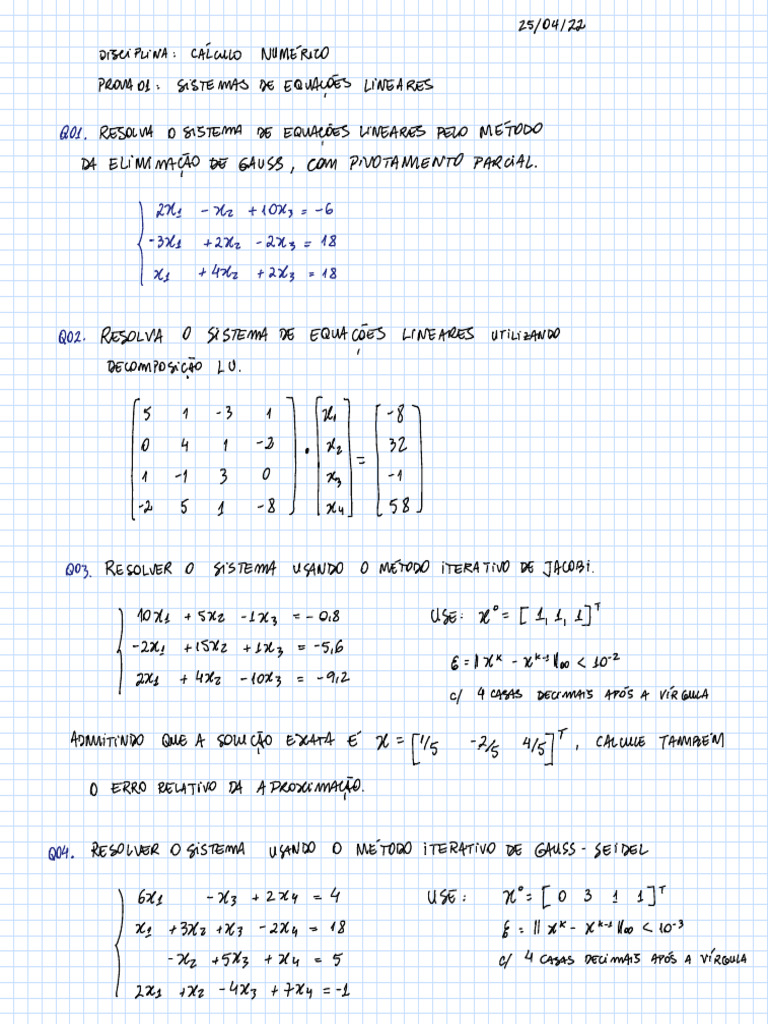 25/04/22
DISCIPLINA: CÁLCULO NUMÉRICO
PROVA 01: SISTEMAS DE EQUAÇÕES LINEARES
Q01. RESOLVA O SISTEMA DE EQUAÇÕES LINEARES PELO MÉTODO
DA ELIMINAÇÃO DE GAUSS, COM PIVOTAMENTO PARCIAL.
2x₁ - x₂ + 10x₃ = -6
-3x₁ + 2x₂ - 2x₃ = 18
x₁ + 4x₂ + 2x₃ = 18
Q02. RESOLVA O SISTEMA DE EQUAÇÕES LINEARES UTILIZANDO
DECOMPOSIÇÃO LU.
[5 1 -3 1] [x₁] [-8]
[0 4 1 -2] · [x₂] = [32]
[1 -1 3 0] [x₃] [-1]
[-2 5 1 -8] [x₄] [58]
Q03. RESOLVER O SISTEMA USANDO O MÉTODO ITERATIVO DE JACOBI.
10x₁ + 5x₂ - 1x₃ = -0,8 USE: x⁰ = [1, 1, 1]ᵀ
-2x₁ + 15x₂ + 1x₃ = -5,6 E = ||xᵏ - xᵏ⁻¹||∞ < 10⁻²
2x₁ + 4x₂ - 10x₃ = -9,2 c/ 4 CASAS DECIMAIS APÓS A VÍRGULA
ADMITINDO QUE A SOLUÇÃO EXATA É x = [1/5 -2/5 4/5]ᵀ, CALCULE TAMBÉM
O ERRO RELATIVO DA APROXIMAÇÃO.
Q04. RESOLVER O SISTEMA USANDO O MÉTODO ITERATIVO DE GAUSS-SEIDEL
6x₁ - x₃ + 2x₄ = 4 USE: x⁰ = [0 3 1 1]ᵀ
x₁ + 3x₂ + x₃ - 2x₄ = 18 E = ||xᵏ - xᵏ⁻¹||∞ < 10⁻³
-x₂ + 5x₃ + x₄ = 5 c/ 4 CASAS DECIMAIS APÓS A VÍRGULA
2x₁ + x₂ - 4x₃ + 7x₄ = -1